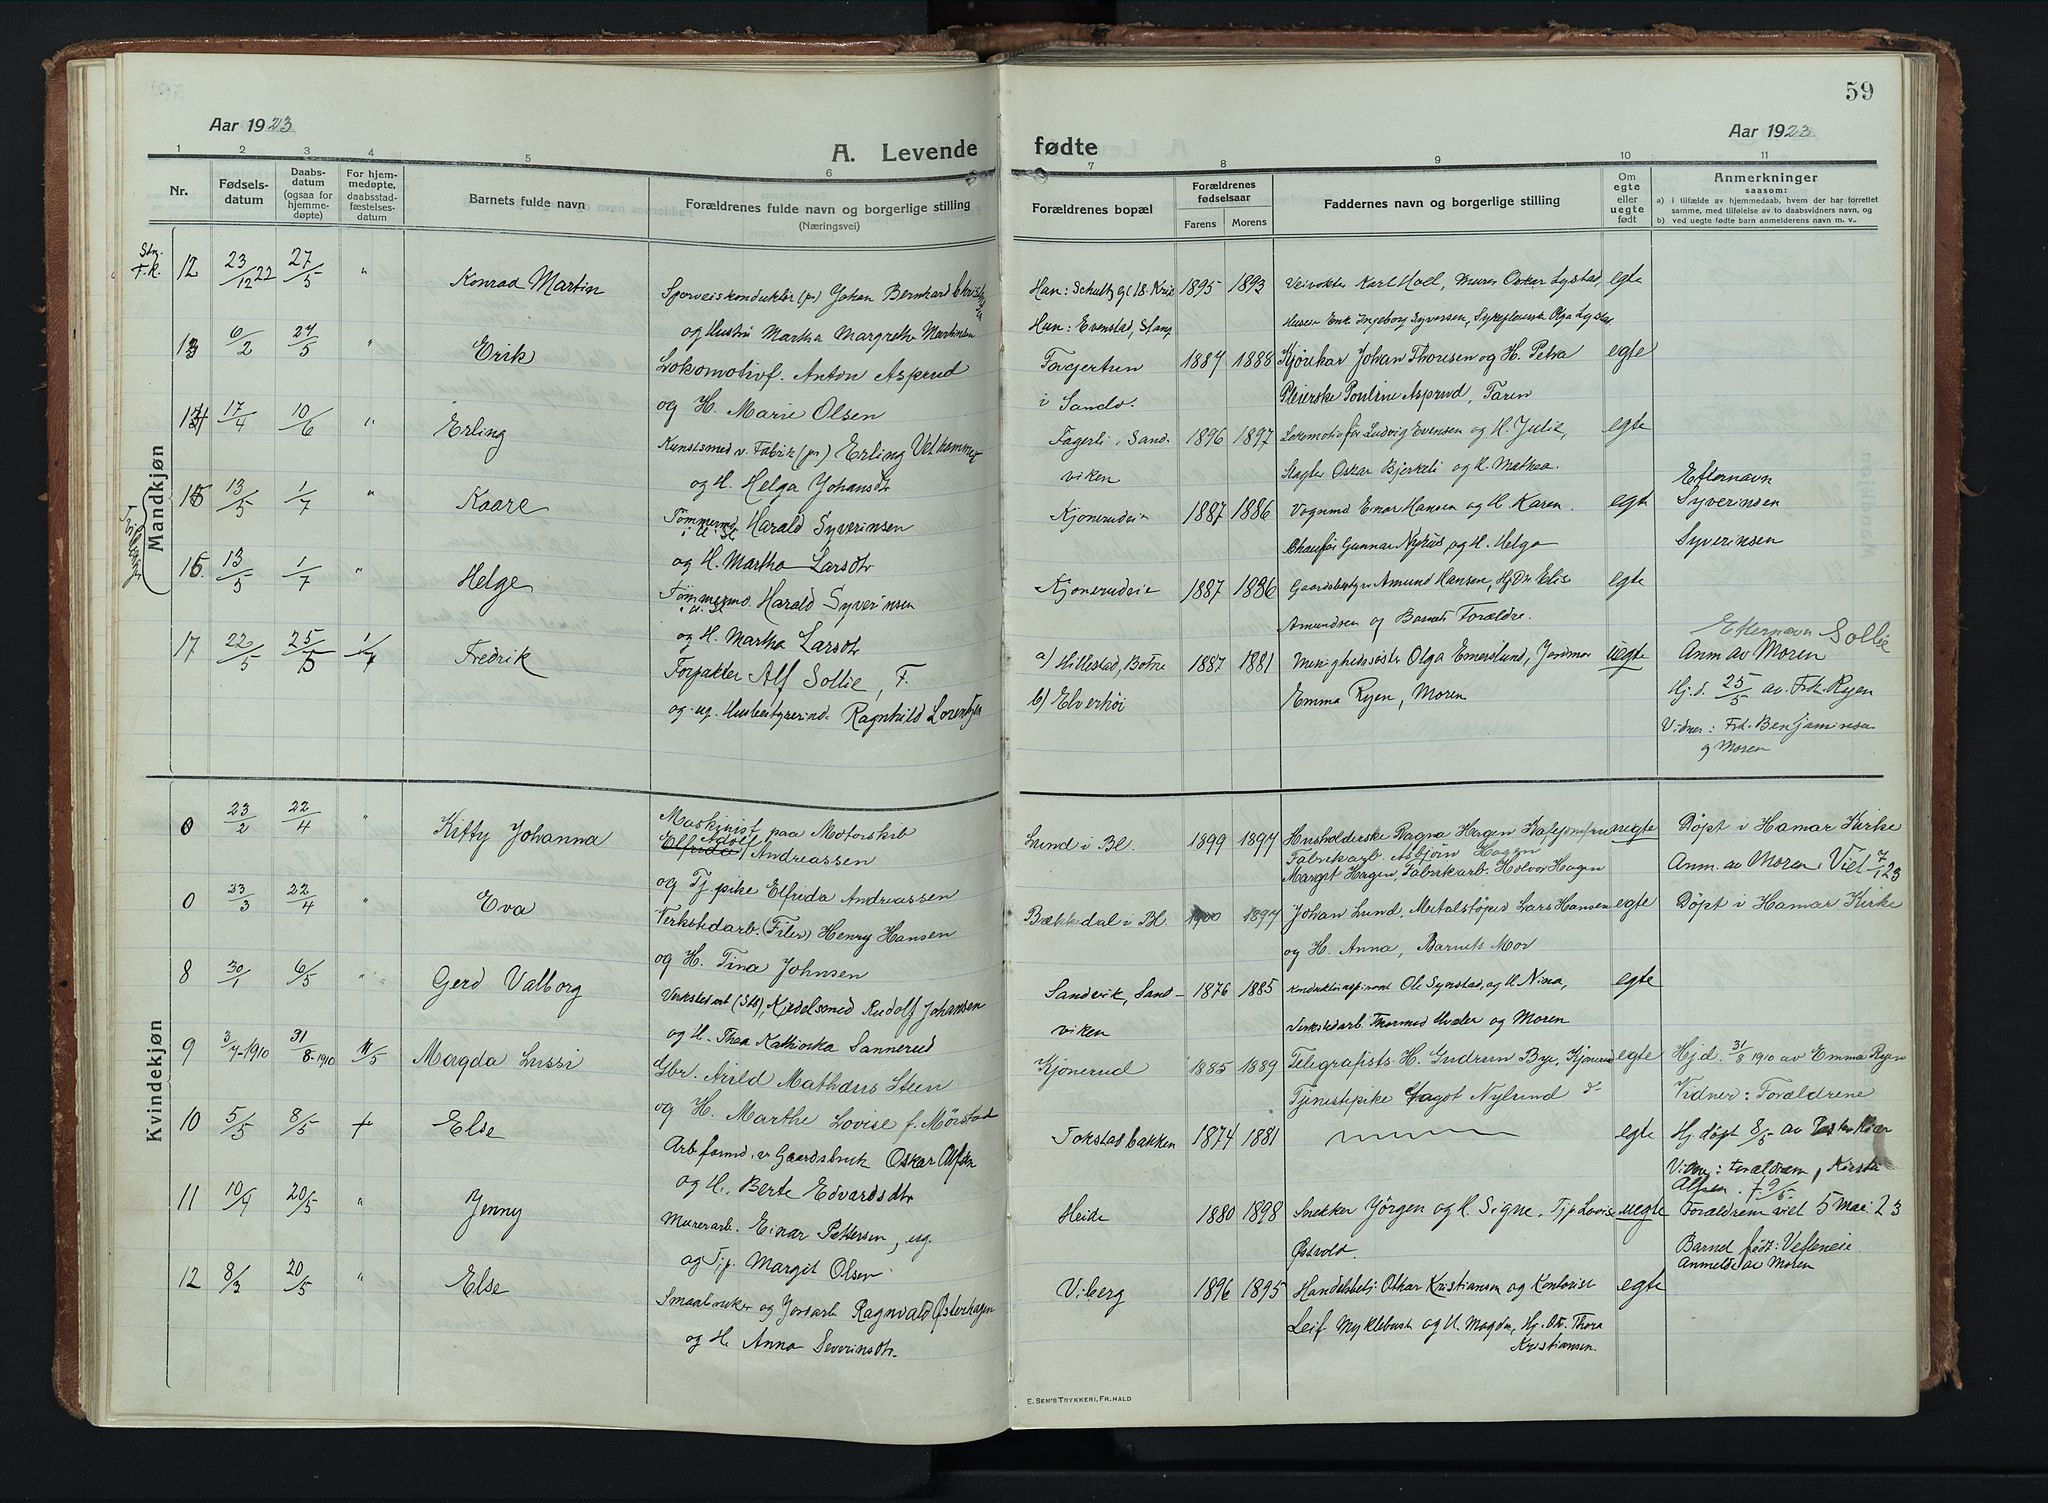 59
Aar 1923
A. Levende fødte
Aar 1923
1 2 3 4 5 6 7 8 9 10 11
Nr.
Fødsels-
datum
Daabs-
datum
(ogsaa for
hjemme-
døpte)
For hjem-
medøpte,
daabsstad-
fæstelses-
datum
Barnets fulde navn
Forældrenes fulde navn og borgerlige stilling
(Næringsvei)
Forældrenes bopæl
Forældrenes
fødselsaar
Farens Morens
Faddernes navn og borgerlige stilling
Om
egte
eller
uegte
født
Anmerkninger
saasom:
a) i tilfælde av hjemmedaab, hvem der har forrettet
samme, med tilføielse av to daabsvidners navn, og
b) ved uegte fødte barn anmelderens navn m. v..
Mandkjøn
12 23/12 22 27/5 " Konrad Martin
og Hustru Martha Margrethe Martinsen
Han: Schultzgt 18. Kria
Hun: Evenstad, Stang
1895 1893
Veivokter Karl Hoel, Murer Oskar Lystad,
egte
13 6/2 27/5 " Erik
Lokomotivf. Anton Asprud
og H. Marie Olsen
i Sandv.
1884 1888
Kjørekar Johan Thoresen og H. Petra
Pleierske Pouline Asprud, Faren
egte
14 17/4 10/6 " Erling
og H. Helga Johansdtr
Fagerli, Sand-
viken
1896 1897
Lokomotivfør Ludvig Evensen og H. Julie,
Slagter Oskar Bjerkeli og H. Mathea.
egte
15 13/5 1/7 " Kaare
Tømmermd Harald Syverinsen
og H. Martha Larsdtr
Kjonerudeie
1887 1886
Vognmd Einar Hansen og H. Karen.
Chauffør Gunnar Nyhus og H. Helga
egte
Efternavn
Syverinsen
16 13/5 1/7 " Helge
Tømmermd. Harald Syverinsen
og H. Martha Larsdtr
Kjonerudeie
1887 1886
Gaardsbestyr Amund Hansen, Hj Dm Elise
Amundsen og Barnets Forældre.
egte
Syverinsen
17 22/5 25/5 1/7 Fredrik
Forpakter Alf Sollie, F.
og ug. Husbestyrerind. Ragnhild Lorentzen
a) Hillestad, Botne
b) Elverhöi
1887 1881
Menighedssøster Olga Emerslund, Jordmor
Emma Ryen, Moren
uegte
Efternavn Sollie
Anm av Moren
Hj. d. 25/5 av. Frk. Ryen
Vidner: Frk. Benjaminsen
og Moren
Kvindekjøn
0 23/2 22/4 " Kitty Johanna
Maskinist paa Motorskib
Adolf Andreassen
og Tj. pike Elfrida Andreassen
Lund i Bl.
1899 1897
Husholderske Ragna Hagen
Fabrikarb. Asbjörn Hagen
Margit Hagen, Fabrikarb. Holvor Hagen
uegte
Döpt i Hamar Kirke
Anm. av Moren. Viet 7/1 23
0 23/3 22/4 " Eva
Verkstedarb. (Filer) Henry Hansen
og H. Tina Johnsen
Bækkedal i Bl.
1900 1897
Johan Lund, Metalstøper Lars Hansen
og H. Anna, Barnets Mor
egte
Döpt i Hamar Kirke
8 30/1 6/5 " Gerd Valborg
Verkstedarb (Stb), Kjedelsmed Rudolf Johansen
og H. Thea Kathinka Sannerud
Sandvik, Sand-
viken
1876 1885
Konduktöraspirant Ole Syverstad, og H. Nina,
og Moren
egte
9 3/7-1910 31/8-1910 11/5 Magda Lussi
Gbr. Arild Mathæus Steen
og H. Marthe Lovise f. Mørstad
Kjonerud
1885 1889
Telegrafists H. Gudrun Bye, Kjonerud
Tjenestepike Nylund
egte
Hj.d. 31/8 1910 av Emma Ryen
Vidner: Forældrene
10 5/5 8/5 + Else
Arbformd. v. Gaardsbruk Oskar Alfsen
og H. Berte Edvardsdtr
Tokstadbakken
1874 1881
egte
Hj. döpt 8/5 av
11 10/4 20/5 " Jenny
Murerarb. Einar Pettersen, ug.
og Tjp. Margit Olsen
Heide
1880 1898
Snekker Jörgen og H. Signe, Tjp Lovise
Østvold.
uegte
Forældrene viet 5 Mai 23
Barnet født: Vefleneie
Anmeldt av Moren
12 8/3 20/5 " Else
Smaabruker og Jordarb Ragnvald Østerhagen
og H. Anna Severinsdtr.
Viberg
1896 1895
Handelsbetj Oskar Kristiansen og Kontorist
Leif Myklebust og H. Magda, Thora
Kristiansen.
egte
E. SEM'S TRYKKERI, FR.HALD